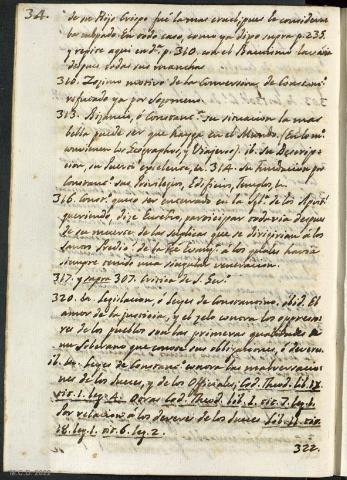 34.
de su Hijo Crispo fué la mas cruel, pues le consideraba
culpado. En todo caso, como ya dijo supra p. 235.
y repite aqui en d. p. 310. con el Bautismo lavaria
despues todas sus manchas
310. Zosimo motivo de la Conversion de Constant.
refutado ya por Sozomeno.
313. Bizancio, ó Constant. Su situacion la mas
bella puede ser que haya en el Mundo. (En lo mº
convienen los Geographos, y Viageros) ib. Su Descripcion,
su Puerto excelente, &. 314. Su Fundacion por
Constant. sus Privilegios, Edificios, Templos, &.
316. Const. quiso ser enterrado en la Igª. de los Apost.
queriendo, dize Eusebio, participar todavia despues
de su muerte de las suplicas que se dirigirian á los
Santos Predic. de la Fe Evang. á los quales havia
siempre tenido una singular veneracion.
317. y supra 307. Critica de S. Ger.
320. La legislacion, ó Leyes de Constantino. ibid. El
amor de la justicia, y el zelo contra los opresores
de los pueblos son las primeras qualidades de
un Soberano que conoce sus obligaciones, ó deveres.
ib. Leyes de Constant. contra las malversaciones
de los Jueces, y de los Officiales, Cod. Theod. lib. IX.
tit. 1. leg. 4. Otras Cod. Theod. lib. 1. tit. 7. leg. 1.
Por relacion á los deveres de los Jueces Lib. 11. tit.
18. leg. 1. tit. 6. leg. 2.
322.